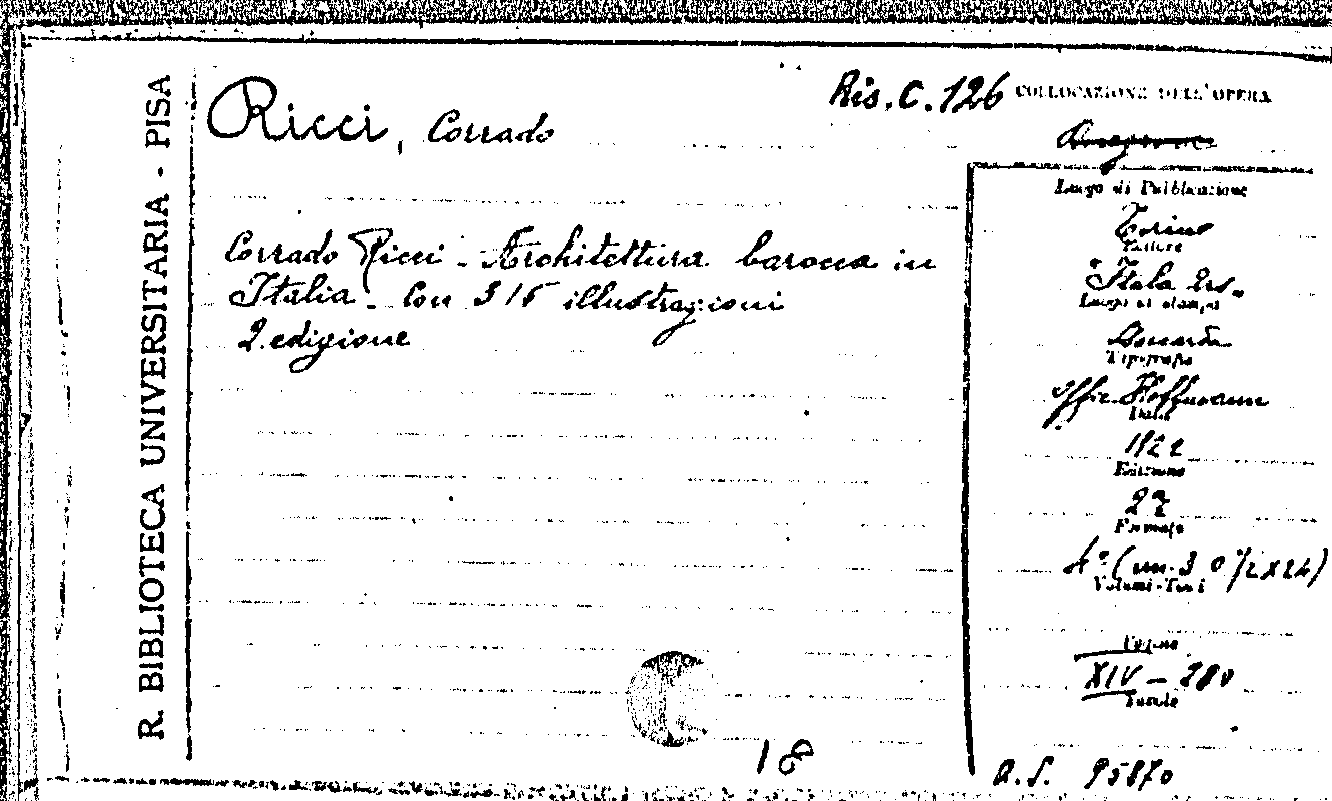 R. BIBLIOTECA UNIVERSITARIA - PISA
Ricci, Corrado
Ris. C. 126
COLLOCAZIONE DELL'OPERA
Corrado Ricci - Architettura barocca in
Italia - Con 315 illustrazioni
2. edizione
Luogo di Pubblicazione
Torino
Editore
Itala Ars.
Luogo di stampa
Tipografia
Offic. Hoffmann
Data
1922
Edizione
2ª
Formato
4° (cm. 30 1/2 x 24)
Volumi-Tomi
Pagine
XIV - 280
Tavole
18
R. S. 95870